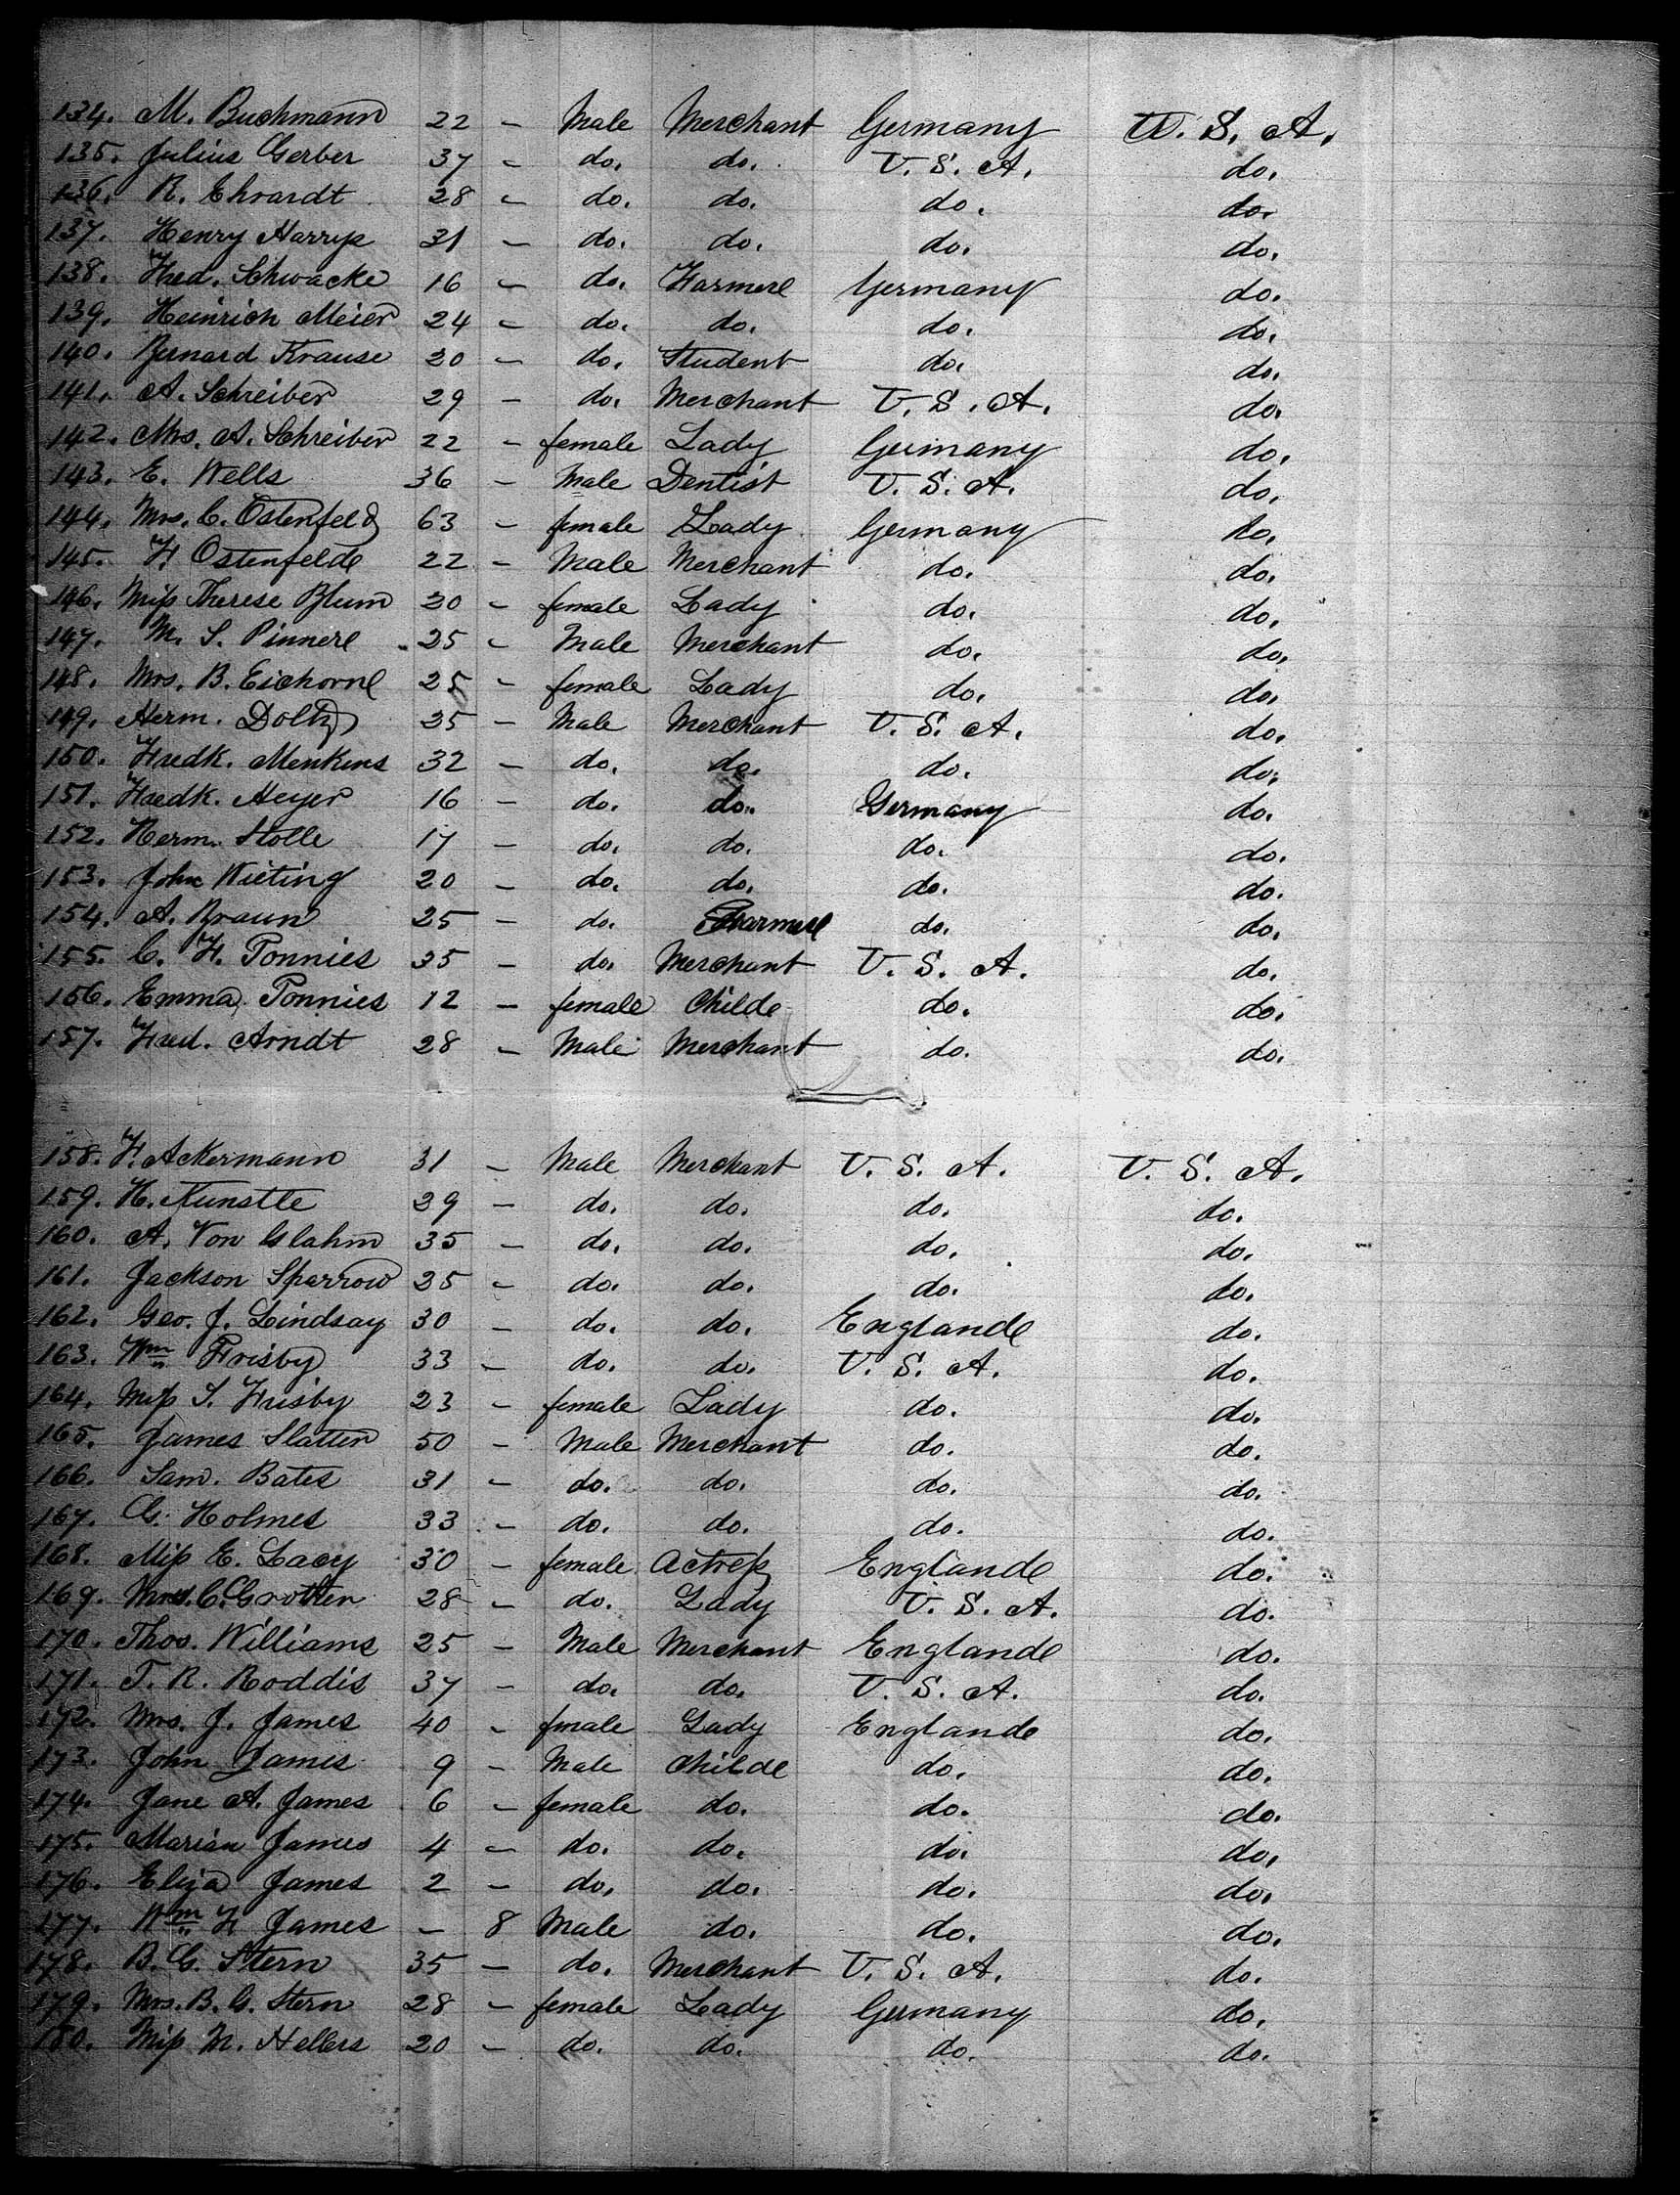 134. M. Buchmann 22 - Male Merchant Germany U. S. A.
135. Julius Gerber 37 - do. do. U. S. A. do.
136. R. Ehrardt 28 - do. do. do. do.
137. Henry Harrys 31 - do. do. do. do.
138. Fred. Schwacke 16 - do. Farmer Germany do.
139. Heinrich Meier 24 - do. do. do. do.
140. Bernard Krause 20 - do. Student do. do.
141. A. Schreiber 29 - do. Merchant U. S. A. do.
142. Mrs. A. Schreiber 22 - female Lady Germany do.
143. E. Wells 36 - Male Dentist U. S. A. do.
144. Mrs. C. Ostenfeld 63 - female Lady Germany do.
145. F. Ostenfeld 22 - Male Merchant do. do.
146. Miss Therese Blum 20 - female Lady do. do.
147. M. S. Pinner 25 - Male Merchant do. do.
148. Mrs. B. Eichorn 25 - female Lady do. do.
149. Herm. Doltz 35 - Male Merchant U. S. A. do.
150. Fredk. Menkens 32 - do. do. do. do.
151. Fredk. Heyer 16 - do. do. Germany do.
152. Herm. Stolle 17 - do. do. do. do.
153. John Wieting 20 - do. do. do. do.
154. A. Braun 25 - do. Farmer do. do.
155. C. F. Tonnies 35 - do. Merchant U. S. A. do.
156. Emma Tonnies 12 - female Child do. do.
157. Fred. Arndt 28 - Male Merchant do. do.
158. F. Ackermann 31 - Male Merchant U. S. A. U. S. A.
159. H. Kunstle 29 - do. do. do. do.
160. A. Von Glahn 35 - do. do. do. do.
161. Jackson Sparrow 25 - do. do. do. do.
162. Geo. J. Lindsay 30 - do. do. England do.
163. Wm Frisby 33 - do. do. U. S. A. do.
164. Miss S. Frisby 23 - female Lady do. do.
165. James Slatter 50 - Male Merchant do. do.
166. Sam. Bates 31 - do. do. do. do.
167. G. Holmes 33 - do. do. do. do.
168. Miss E. Lacy 30 - female Actress England do.
169. Mrs. C. Grotten 28 - do. Lady U. S. A. do.
170. Thos. Williams 25 - Male Merchant England do.
171. T. R. Roddis 37 - do. do. U. S. A. do.
172. Mrs. J. James 40 - female Lady England do.
173. John James 9 - Male Child do. do.
174. Jane A. James 6 - female do. do. do.
175. Marian James 4 - do. do. do. do.
176. Eliza James 2 - do. do. do. do.
177. Wm F James - 8 Male do. do. do.
178. B. G. Stern 35 - do. Merchant U. S. A. do.
179. Mrs. B. G. Stern 28 - female Lady Germany do.
180. Miss M. Hellers 20 - do. do. do. do.